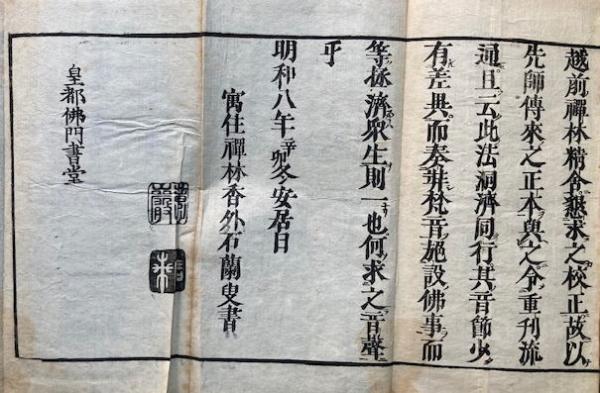 越前禪林精舍懇求之校正故以
先師傳來之正本與之令重刊流
通且云此法洞濟同行其音節少
有差異而奏殊梵音施設佛事而
等拯濟衆生則一也何求之音聲
乎
明和八年辛卯冬安居日
寓住禪林香外石蘭叟書
皇都佛門書堂